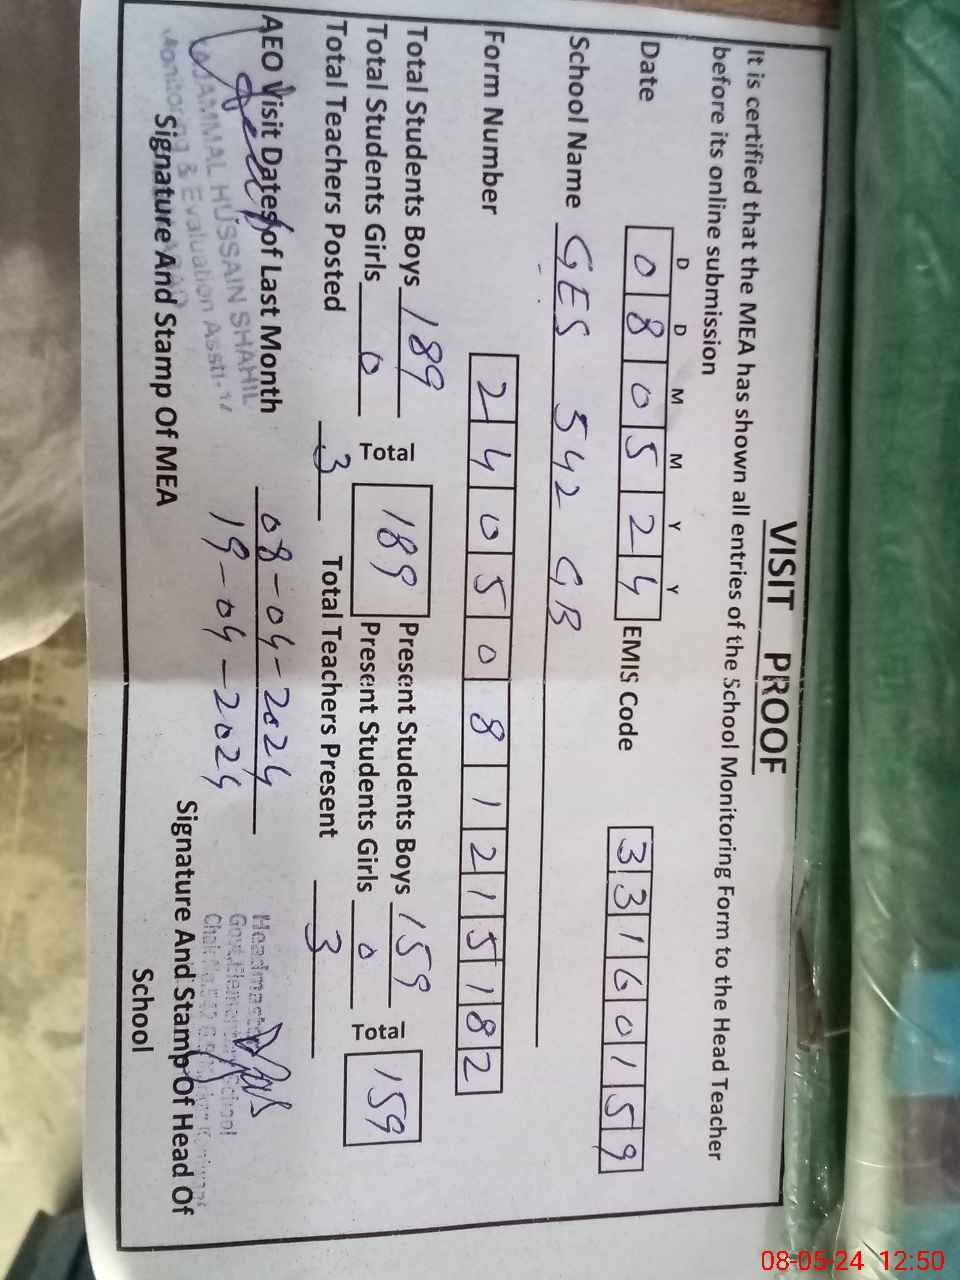 VISIT PROOF
It is certified that the MEA has shown all entries of the School Monitoring Form to the Head Teacher
before its online submission
D D M M Y Y
Date 0 8 0 5 2 4 EMIS Code 3 3 1 6 0 1 5 9
School Name GES 542 GB
Form Number 2 4 0 5 0 8 1 2 1 5 1 8 2
Total Students Boys 189 Total 189 Present Students Boys 159 Total 159
Total Students Girls 0 Present Students Girls 0
Total Teachers Posted 3 Total Teachers Present 3
AEO Visit Dates of Last Month 08-04-2024
19-04-2024
HUSSAIN SHAHIL
Monitoring & Evaluation Asstt-17
Signature And Stamp Of MEA
Headmaster
Signature And Stamp Of Head Of
School
08-05-24 12:50